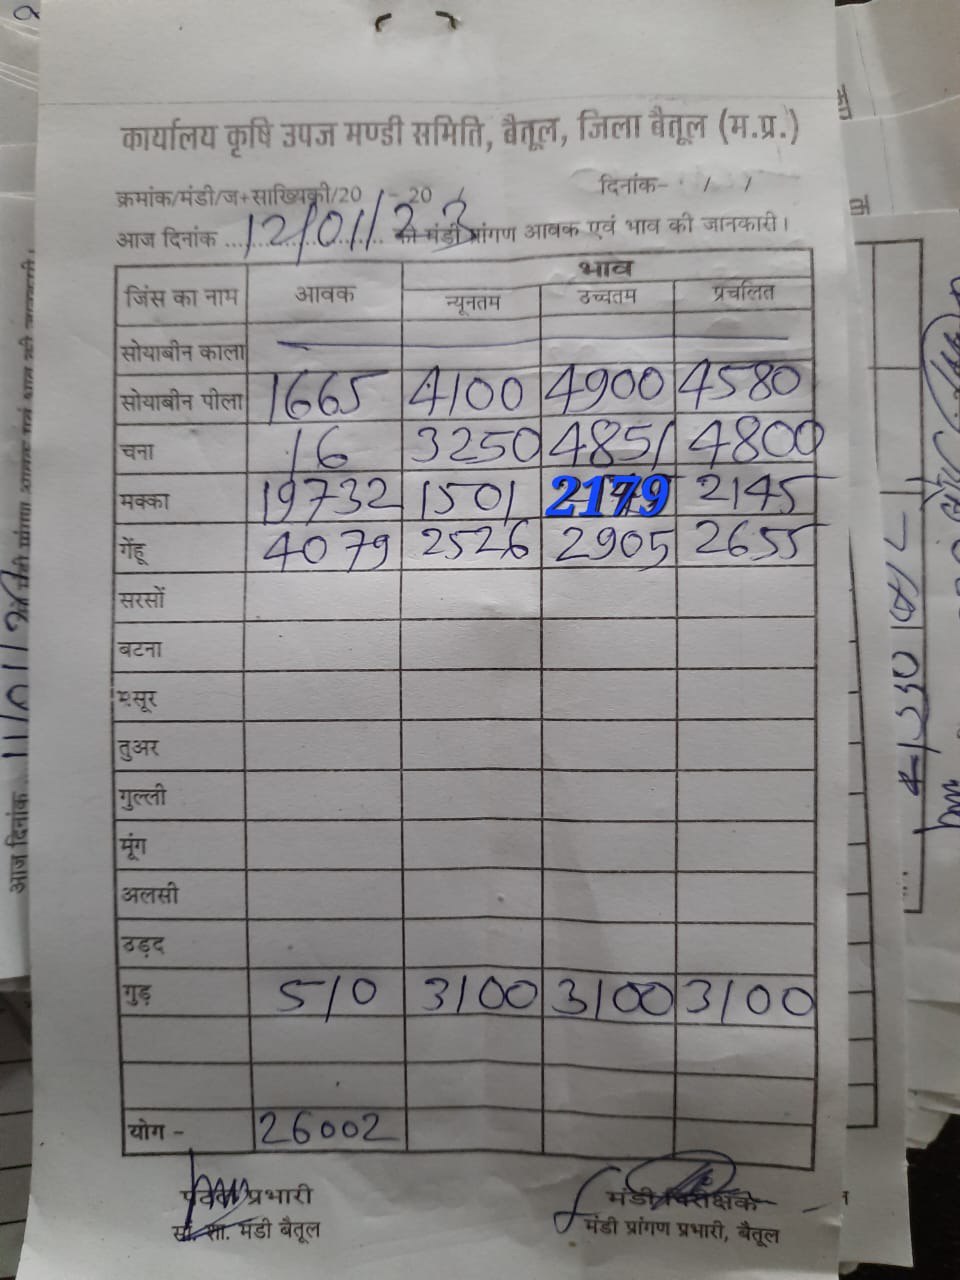 कार्यालय कृषि उपज मण्डी समिति, बैतूल, जिला बैतूल (म.प्र.)
क्रमांक/मंडी/ज+सांख्यिकी/20 -20 दिनांक- / /
आज दिनांक 12/01/23 को मंडी प्रांगण आवक एवं भाव की जानकारी।
भाव
जिंस का नाम आवक न्यूनतम उच्चतम प्रचलित
सोयाबीन काला
सोयाबीन पीला 1665 4100 4900 4580
चना 16 3250 4851 4800
मक्का 19732 1501 2179 2145
गेंहू 4079 2526 2905 2655
सरसों
बटना
मसूर
तुअर
गुल्ली
मूंग
अलसी
उड़द
गुड़ 510 3100 3100 3100
योग - 26002
प्रभारी मंडी निरीक्षक
सां. सा. मंडी बैतूल मंडी प्रांगण प्रभारी, बैतूल
आज दिनांक 11/01/